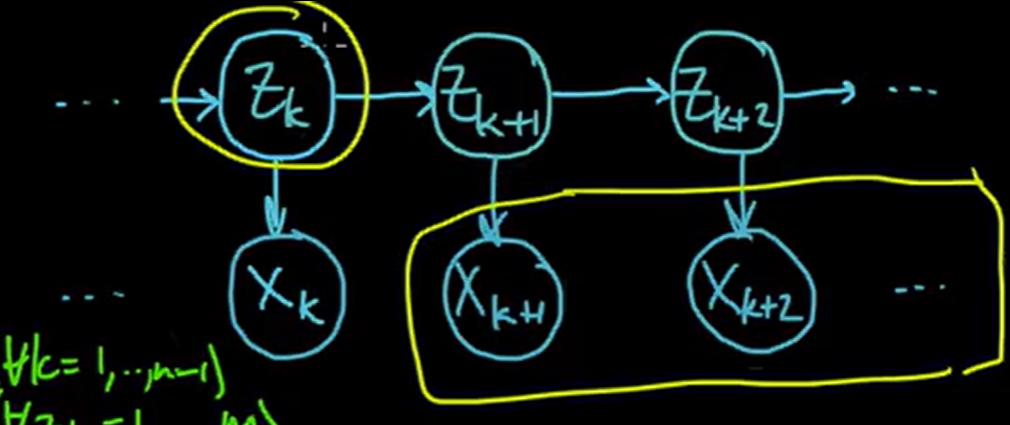 ... Z_k Z_{k+1} Z_{k+2} ...
... X_k X_{k+1} X_{k+2} ...
∀k = 1, .., n-1)